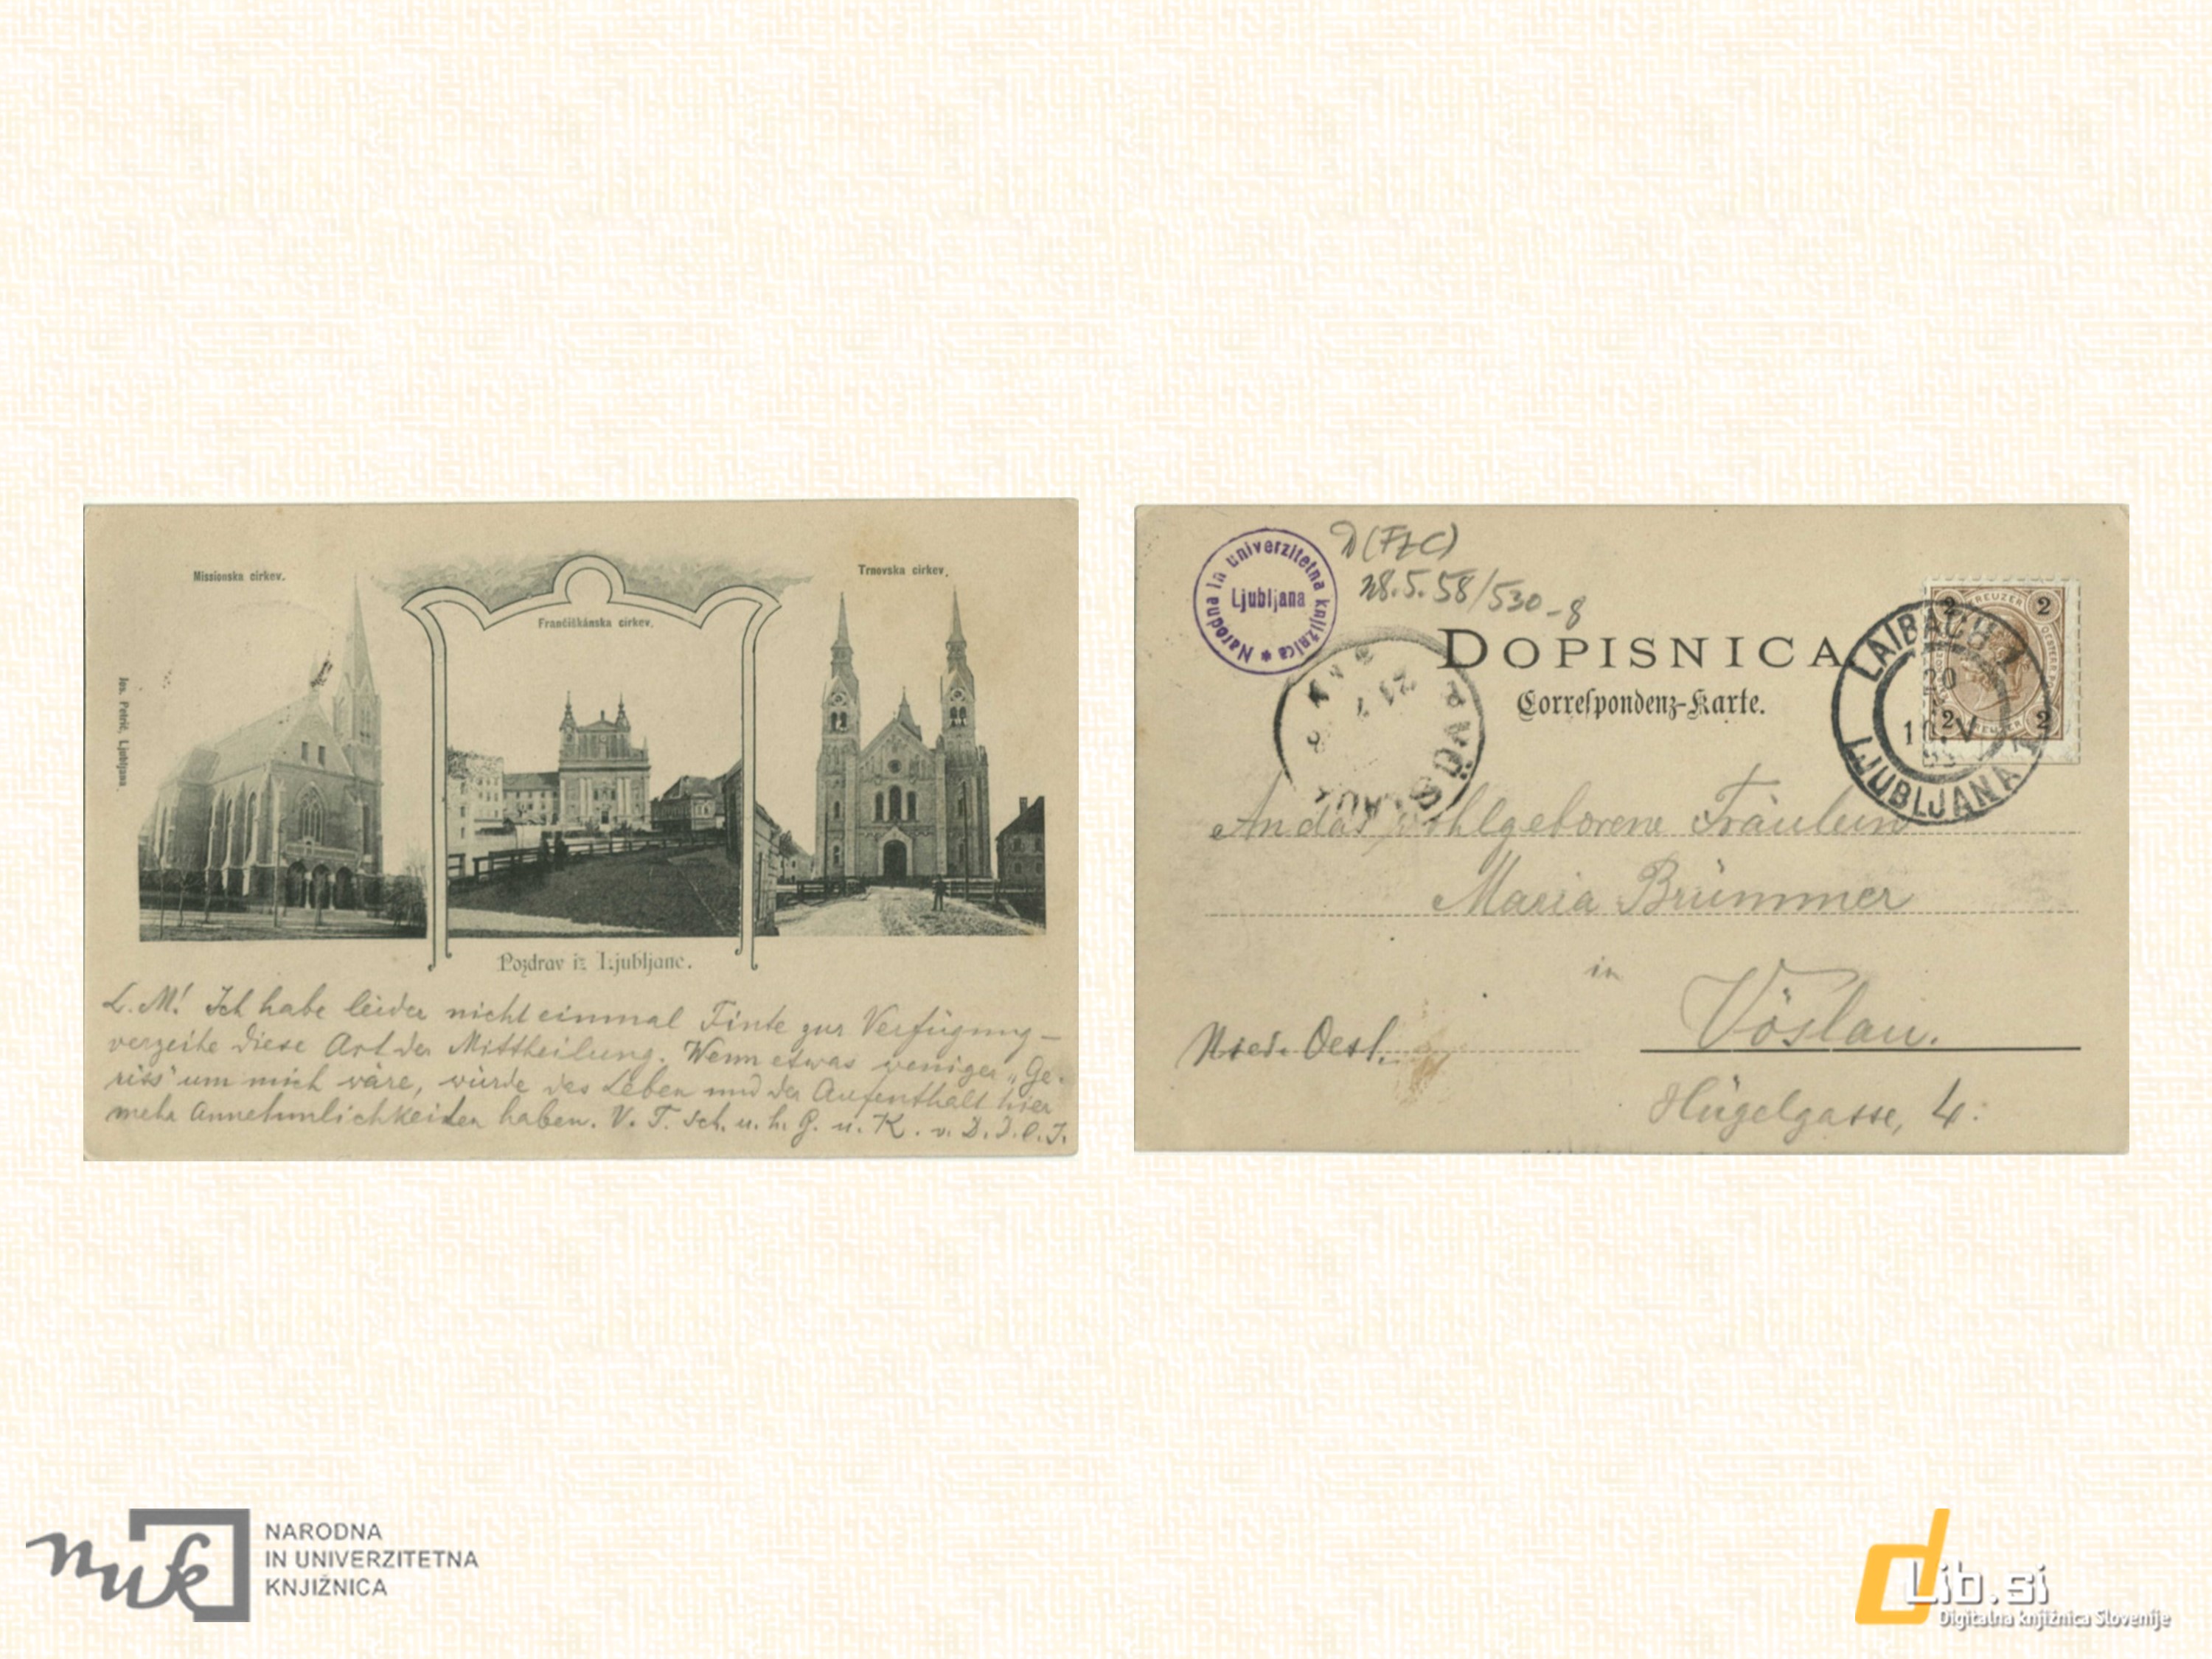 Missionska cirkev.
Frančiškánska cirkev.
Trnovska cirkev.
Jos. Petrič, Ljubljana.
Pozdrav iz Ljubljane.
L. M! Ich habe leider nicht einmal Tinte zur Verfügung –
verzeihe diese Art der Mittheilung. Wenn etwas weniger „Ge-
riss" um mich wäre, würde das Leben und der Aufenthalt hier
mehr Annehmlichkeiten haben. V. T. Sch. u. h. G. u. K. v. D. D. l. J.
Narodna in univerzitetna knjižnica *
Ljubljana
D (FZC)
28.5.58/530-8
DOPISNICA
Correspondenz-Karte.
2 KREUZER 2
2 KREUZER 2
LAIBACH 1
20
LJUBLJANA 1
VÖSLAU
An das wohlgeborene Fräulein
Maria Brümmer
in
Vöslau.
Nied. Oest.
Hügelgasse, 4.
nuk
NARODNA
IN UNIVERZITETNA
KNJIŽNICA
dLib.si
Digitalna knjižnica Slovenije